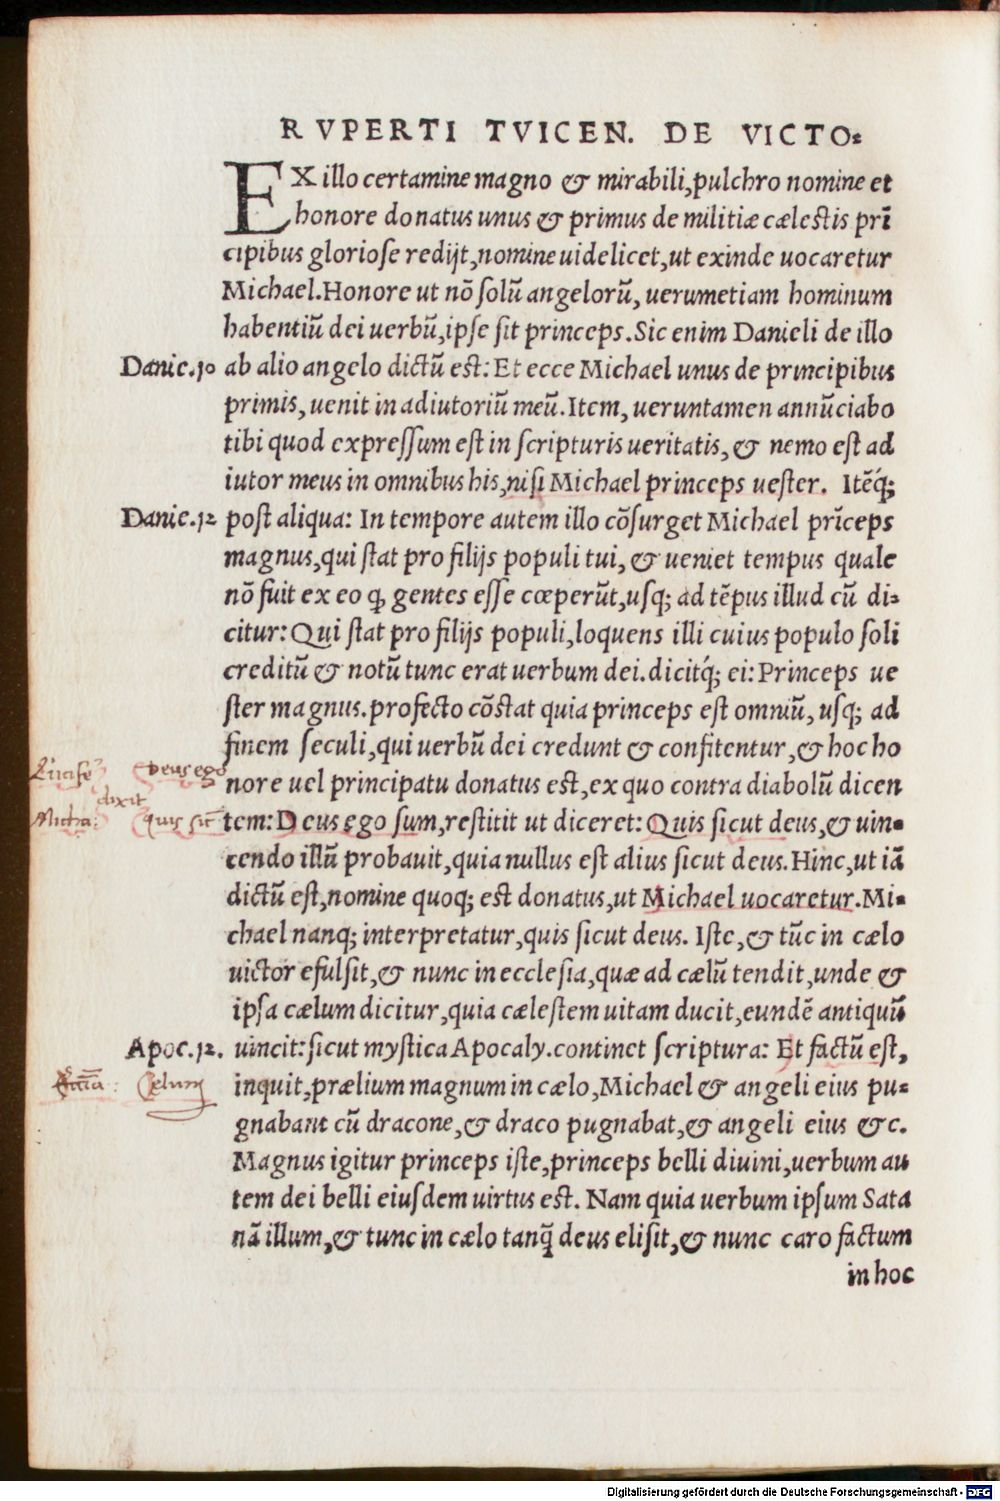 RVPERTI TVICEN. DE VICTO⸗
EX illo certamine magno & mirabili, pulchro nomine et
honore donatus unus & primus de militiæ cælestis prī
cipibus gloriose redijt, nomine uidelicet, ut exinde uocaretur
Michael. Honore ut nō solū angelorū, uerumetiam hominum
habentiū dei uerbū, ipse sit princeps. Sic enim Danieli de illo
Danie.10 ab alio angelo dictū est: Et ecce Michael unus de principibus
primis, uenit in adiutoriū meū. Item, ueruntamen annūciabo
tibi quod expressum est in scripturis ueritatis, & nemo est ad
iutor meus in omnibus his, nisi Michael princeps uester. Itēq́;
Danie.12 post aliqua: In tempore autem illo cōsurget Michael prīceps
magnus, qui stat pro filijs populi tui, & ueniet tempus quale
nō fuit ex eo ꝗ gentes esse cœperūt, usq; ad tēpus illud cū di⸗
citur: Qui stat pro filijs populi, loquens illi cuius populo soli
creditū & notū tunc erat uerbum dei. dicitq́; ei: Princeps ue
ster magnus. profecto cōstat quia princeps est omniū, usq; ad
finem seculi, qui uerbū dei credunt & confitentur, & hoc ho
Deus ego
nore uel principatu donatus est, ex quo contra diabolū dicen
dixit
Micha: quis sic̄
tem: Deus ego sum, restitit ut diceret: Quis sicut deus, & uin⸗
cendo illū probauit, quia nullus est alius sicut deus. Hinc, ut iā
dictū est, nomine quoq; est donatus, ut Michael uocaretur. Mi⸗
chael nanq; interpretatur, quis sicut deus. Iste, & tūc in cælo
uictor efulsit, & nunc in ecclesia, quæ ad cælū tendit, unde &
ipsa cælum dicitur, quia cælestem uitam ducit, eundē antiquū
Apoc.12. uincit: sicut mystica Apocaly. continet scriptura: Et factū est,
inquit, prælium magnum in cælo, Michael & angeli eius pu⸗
gnabant cū dracone, & draco pugnabat, & angeli eius &c.
Magnus igitur princeps iste, princeps belli diuini, uerbum au
tem dei belli eiusdem uirtus est. Nam quia uerbum ipsum Sata
nā illum, & tunc in cælo tanq̄ deus elisit, & nunc caro factum
in hoc
Digitalisierung gefördert durch die Deutsche Forschungsgemeinschaft - DFG